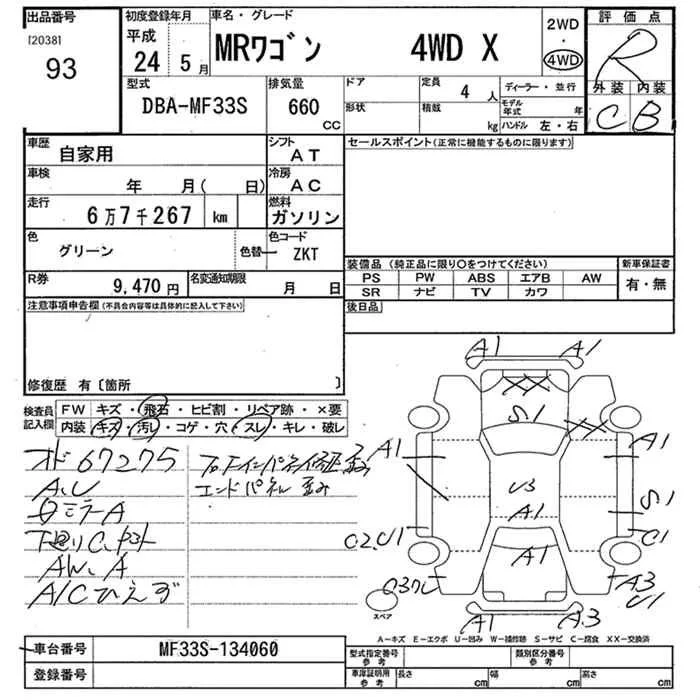 出品番号 初度登録年月 車名・グレード 評価点
[2038] 平成 2WD
93 24 年 5 月 MRワゴン 4WD X ・
4WD R
型式 排気量 ドア 定員 4 人 ディーラー・並行 外装 内装
DBA-MF33S 660 CC 形状 積載 kg モデル年式 年 C B
ハンドル 左・右
車歴 自家用 シフト AT セールスポイント(正常に機能するものに限ります)
車検 年 月( 日) 冷房 AC
走行 6万7千267 km 燃料 ガソリン
色 グリーン 色替 ー 色コード ZKT
装備品(純正品に限り○をつけてください) 新車保証書
PS PW ABS エアB AW 有・無
SR ナビ TV カワ
R券 9,470 円 名変通知期限 月 日
注意事項申告欄(不具合内容等は具体的に記入して下さい) 後日品
修復歴 有〔箇所 〕
検査員記入欄 FW キズ・飛石・ヒビ割・リペア跡・×要
内装 キズ・汚レ・コゲ・穴・スレ・キレ・破レ
オド 67275
A、U エンドパネル 歪み
ミラーA
下廻りC、
AW、A
A/Cひえず
A1 A1
XX
S1 XX
A1 A1
U3 S1
A1
C2、U1 C1
A1
A3
U1
A1 A3
スペア
A－キズ E－エクボ U－凹み W－補修跡 S－サビ C－腐食 XX－交換済
車台番号 MF33S-134060 型式指定番号 参考 類別区分番号 参考
登録番号 車庫証明用 参考 長さ cm 幅 cm 高さ cm